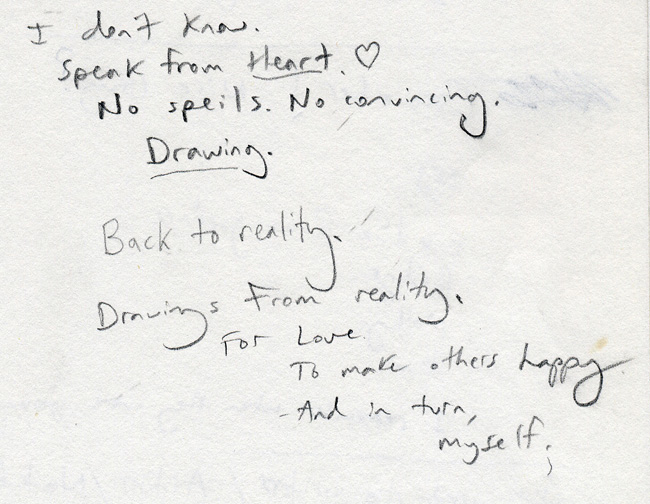 I don't know.
Speak from Heart. ♡
No speils. No convincing.
Drawing.
Back to reality.
Drawings From reality.
For Love
To make others happy
- And in turn,
myself;